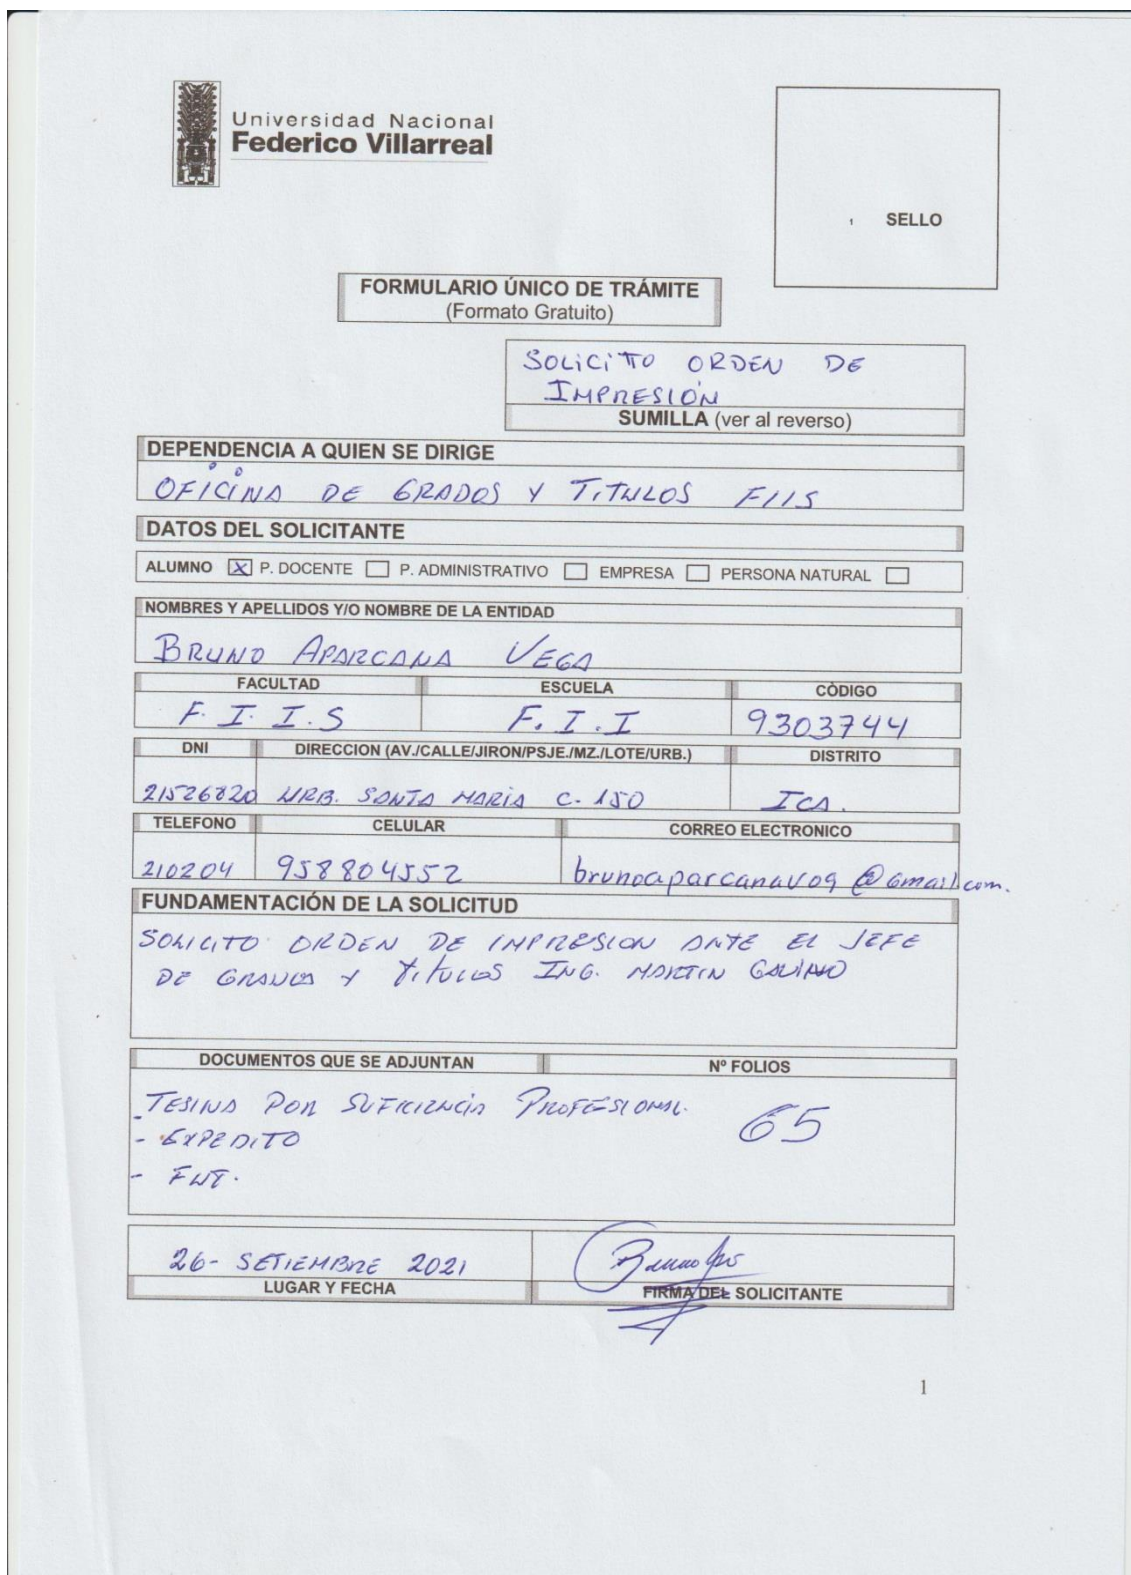 Universidad Nacional
Federico Villarreal
1 SELLO
FORMULARIO ÚNICO DE TRÁMITE
(Formato Gratuito)
SOLICITO ORDEN DE
IMPRESIÓN
SUMILLA (ver al reverso)
DEPENDENCIA A QUIEN SE DIRIGE
OFICINA DE GRADOS Y TITULOS FIIS
DATOS DEL SOLICITANTE
ALUMNO X P. DOCENTE P. ADMINISTRATIVO EMPRESA PERSONA NATURAL
NOMBRES Y APELLIDOS Y/O NOMBRE DE LA ENTIDAD
BRUNO APARCANA VEGA
FACULTAD ESCUELA CÒDIGO
F. I. I. S F. I. I 9303744
DNI DIRECCION (AV./CALLE/JIRON/PSJE./MZ./LOTE/URB.) DISTRITO
21526820 URB. SANTA MARIA C-150 ICA.
TELEFONO CELULAR CORREO ELECTRONICO
210204 958804552 brunoaparcanav09@Gmail.com.
FUNDAMENTACIÓN DE LA SOLICITUD
SOLICITO ORDEN DE IMPRESION ANTE EL JEFE
DE GRADOS Y TITULOS ING. MARTIN GAVINO
DOCUMENTOS QUE SE ADJUNTAN Nº FOLIOS
- TESINA POR SUFICIENCIA PROFESIONAL. 65
- EXPEDITO
- FUT.
26- SETIEMBRE 2021
LUGAR Y FECHA FIRMA DEL SOLICITANTE
1